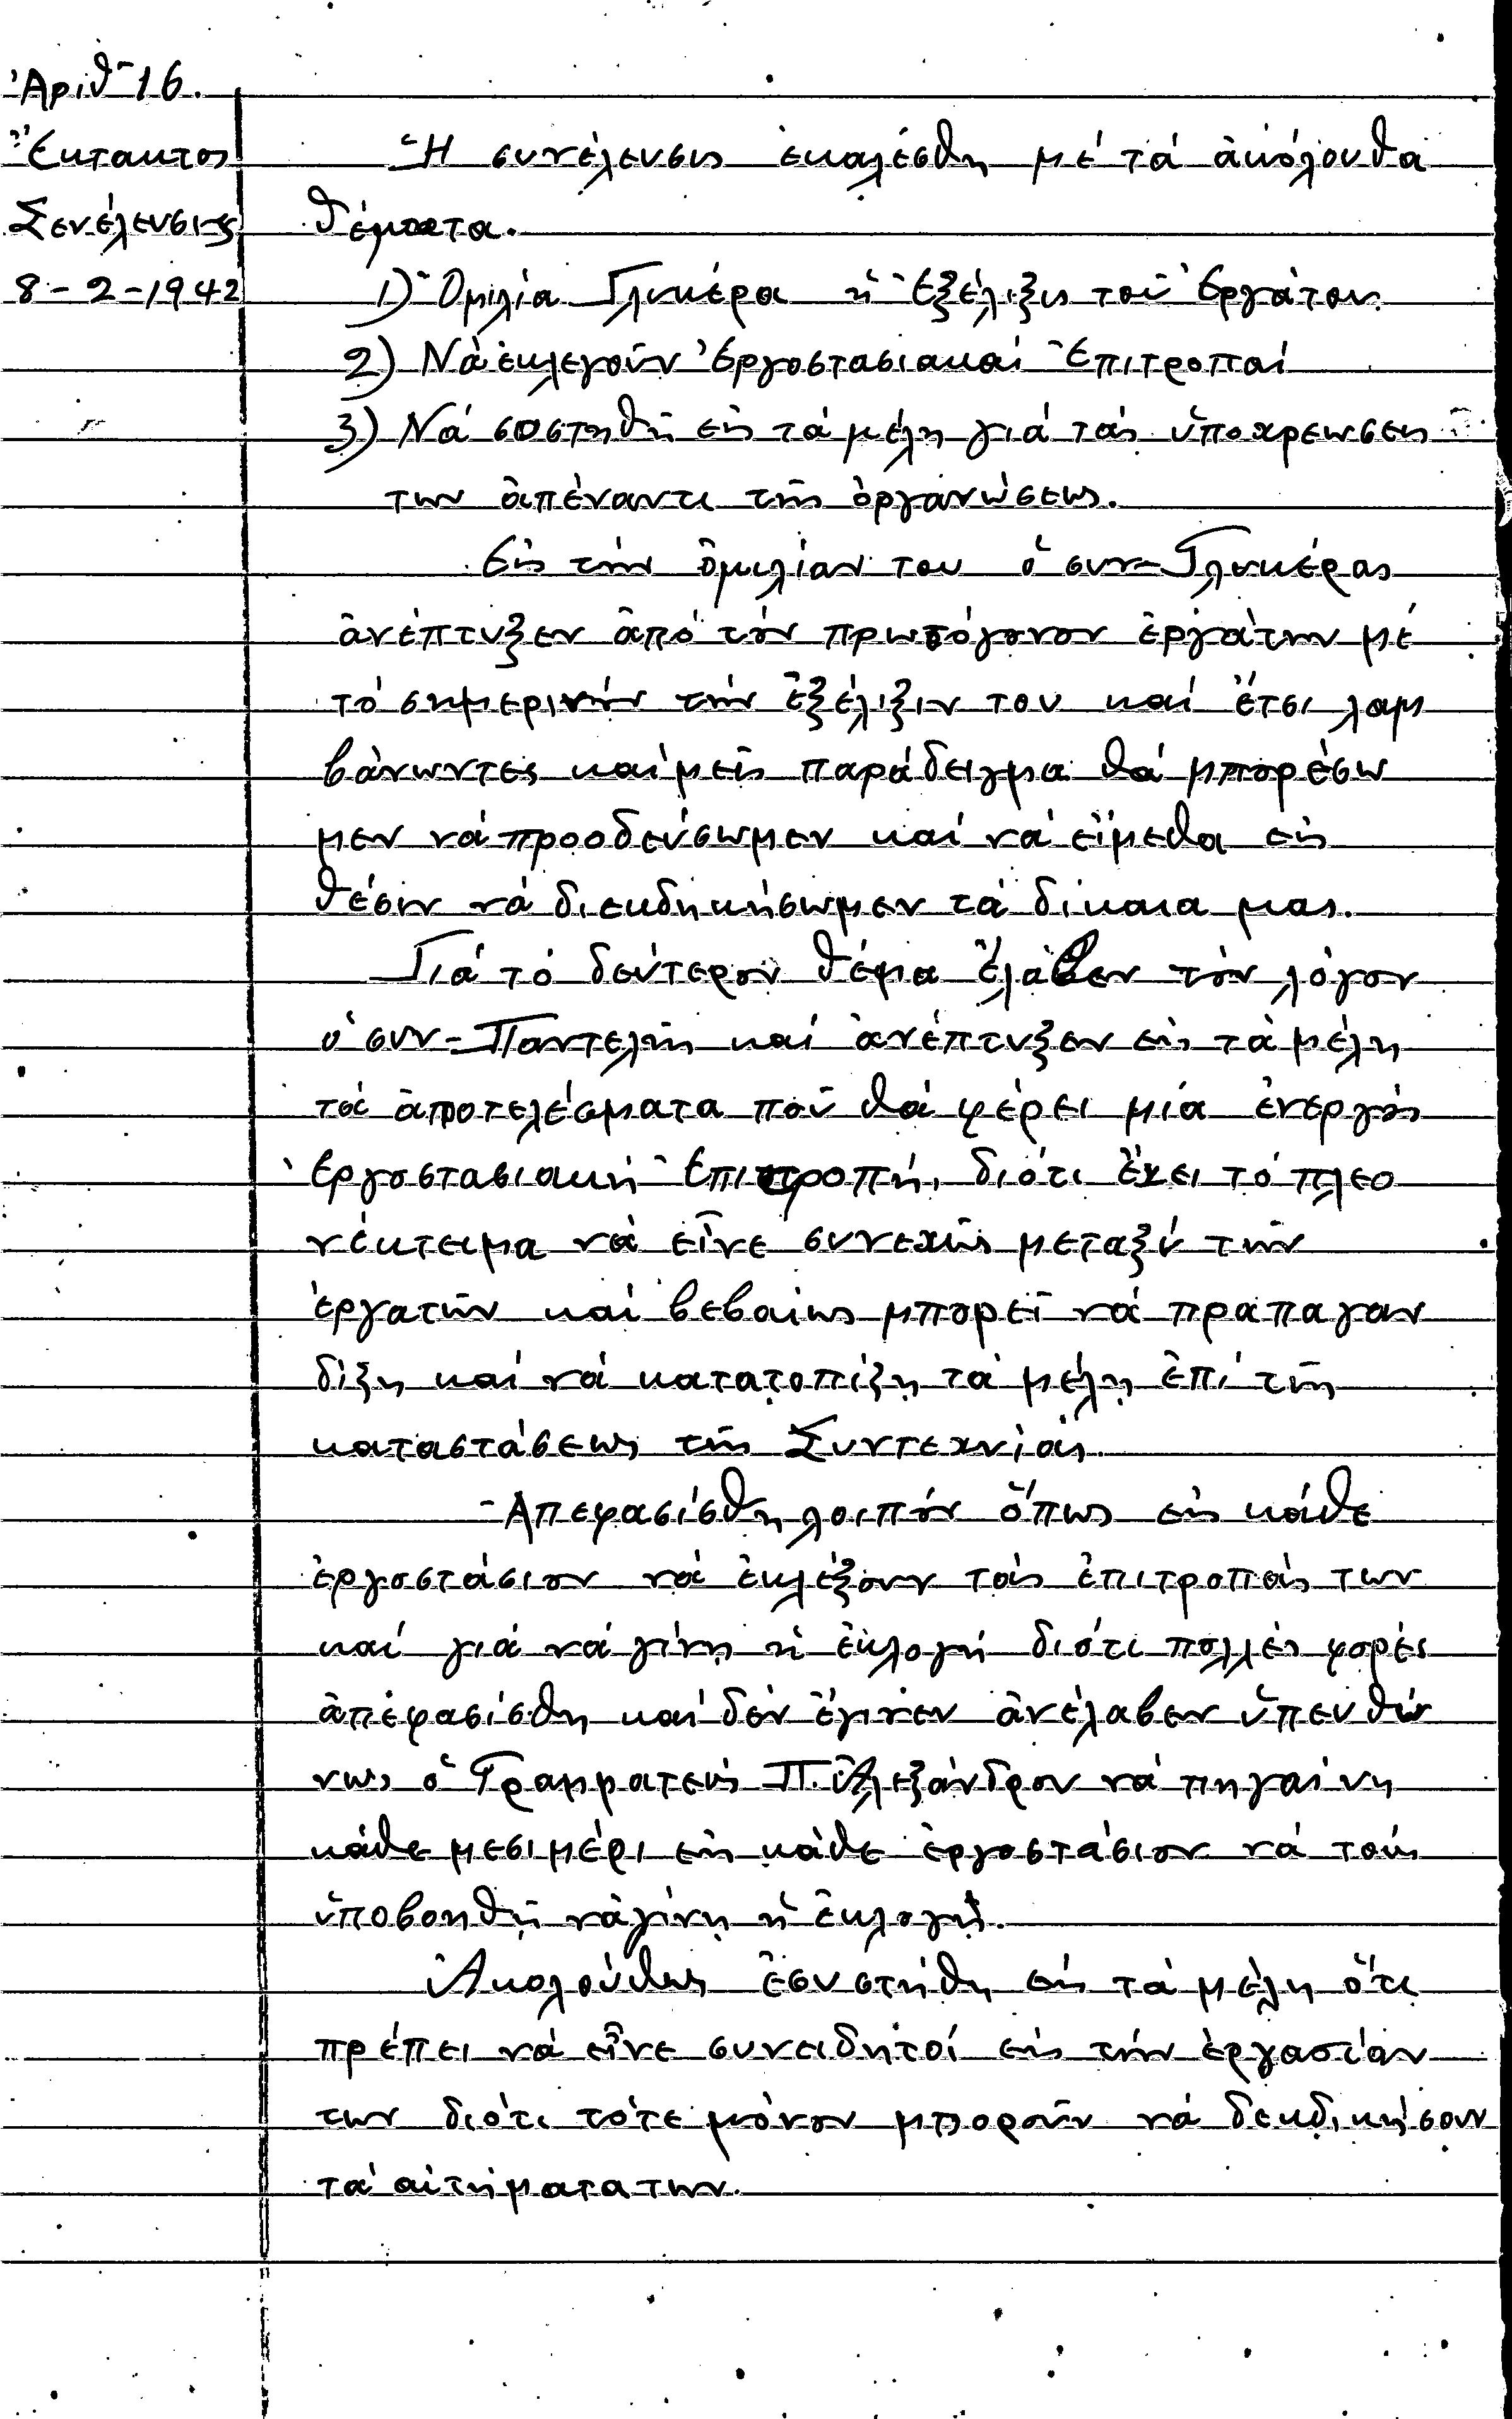 Ἀριθ 16.
Ἔκτακτος
Σενέλευσις
8-2-1942
Ἡ συνέλευσις ἐκαλέσθη μέ τά ἀκόλουθα
θέματα.
1) Ὁμιλία Γλυκέρα ἡ ἐξέλιξις τοῦ ἐργάτου
2) Νὰ ἐκλεγοῦν Ἐργοστασιακαί Ἐπιτροπαί
3) Νά σοστηθῆ εἰς τά μέλη γιά τάς ὑποχρεωσεις
των ἀπέναντι τῆς ὀργανώσεως.
Εἰς τήν ὁμιλίαν του ὁ συν- Γλυκέρας
ἀνέπτυξεν ἀπό τόν πρωτόγονον ἐργάτην μέ
τό σημερινήν τήν ἐξέλιξιν του καί ἔτσι λαμ
βάνωντες καί μεῖς παράδειγμα θά μπορέσω
μεν νά προοδεύσωμεν καί νά εἴμεθα εἰς
θέσιν νά διεκδηκήσωμεν τά δίκαια μας.
Γιά τό δεύτερον θέμα ἔλαβεν τόν λόγον
ὁ συν- Παντελῆς καί ἀνέπτυξεν εἰς τά μέλη
τά ἀποτελέσματα πού θά φέρει μιά ἐνεργός
Ἐργοστασιακή Ἐπιτροπή, διότι ἔχει τό πλεο
νέκτειμα νά εἶνε συνεχῶς μεταξύ τῶν
ἐργατῶν καί βεβαίως μπορεῖ νά πραπαγαν
δίζη καί νά κατατοπίζη τά μέλη ἐπί τῆς
καταστάσεως τῆς Συντεχνίας.
Ἀπεφασίσθη λοιπόν ὅπως εἰς κάθε
ἐργοστάσιον νά ἐκλέξουν τάς ἐπιτροπάς των
καί γιά νά γίνη ἡ ἐκλογή διότι πολλές φορές
ἀπεφασίσθη καί δέν ἔγινεν ἀνέλαβεν ὑπευθύ
νως ὁ Γραμματεύς Π. Ἀλεξάνδρου νά πηγαίνη
κάθε μεσιμέρι εἰς κάθε ἐργοστάσιον νά τούς
ὑποβοηθῆ νά γίνη ἡ ἐκλογή.
Ἀκολούθως ἐσυστήθη εἰς τά μέλη ὅτι
πρέπει νά εἶνε συνειδητοί εἰς τήν ἐργασίαν
των διότι τότε μόνον μποροῦν νά δεκδικήσουν
τά αἰτήματα των.